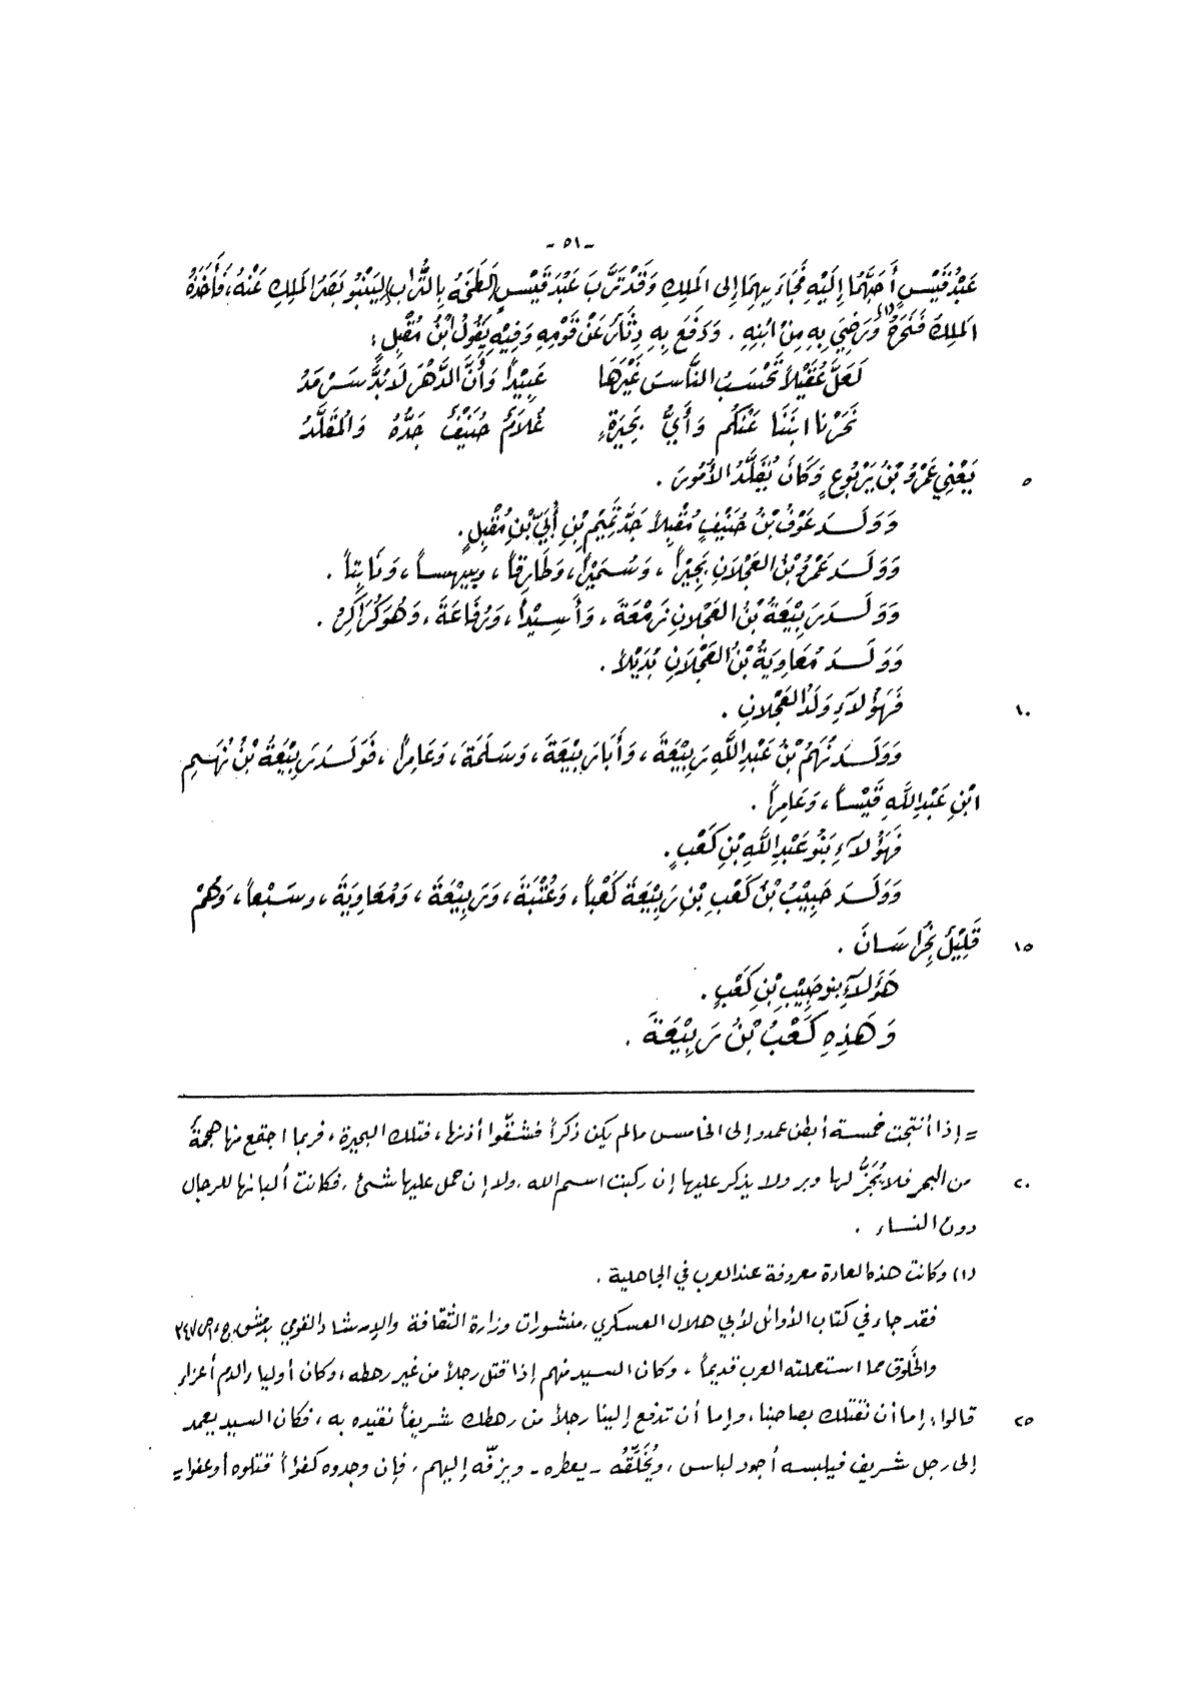 - ٥١ -
عَبْدُ قَيْسٍ أَحَبَّهُمَا إِلَيْهِ فَجَاءَ بِهِمَا إِلى المَلِكِ وَقَدْ تَرَّبَ عَبْدَ قَيْسٍ [لَطَخَهُ بِالتُّرَابِ] لِيَنْبُو بَصَرُ المَلِكِ عَنْهُ، فَأَخَذَهُ
المَلِكُ فَنَحَرَهُ (١) وَرَضِيَ بِهِ مِنْ ابْنِهِ . وَدَفَعَ بِهِ عَنْ قَوْمِهِ وَفِيْهِ يَقُولُ ابْنُ مُقْبِلٍ :
لَعَلَّ عُقَيْلاً تَحْسَبُ النَّاسَ غَيْرَهَا عَبِيْداً وَأَنَّ الدَّهْرَ لَا بُدَّ سَرْمَدُ
نَحَرْنَا ابْنَنَا عَنْكُم وَأَيُّ بَحِيْرَةٍ غُلَامٌ حُنَيْفٌ جَدُّهُ وَالمُقَلَّدُ
٥ يَعْنِي عَمْرُو بْنُ يَرْبُوعٍ وَكَانَ يُقَلَّدُ الأُمُورَ .
وَوَلَدَ عَوْفُ بْنُ حُنَيْفٍ مُقْبِلاً جَدَّ تَمِيْمِ بْنِ أُبَيِّ بْنِ مُقْبِلٍ .
وَوَلَدَ عَمْرُو بْنُ العَجْلَانِ بَحِيْراً ، وَسُمَيْراً، وَطَارِقاً ، وبيهساً ، وَنَاتِئاً .
وَوَلَدَ رَبِيْعَةُ بْنُ العَجْلانِ زَمْعَةَ ، وَأَسِيْداً ، وَرِفَاعَةَ ، وَهُوَ كُرَاكِرُ .
وَوَلَدَ مُعَاوِيَةُ بْنُ العَجْلَانِ بُدَيْلاً .
١٠ فَهَؤُلَاءِ وَلَدُ العَجْلانِ .
وَوَلَدَ نُهَمُ بْنُ عَبْدِ اللَّهِ رَبِيْعَةَ ، وَأَبَا رَبِيْعَةَ ، وَسَلَمَةَ ، وَعَامِراً ، فَوَلَدَ رَبِيْعَةُ بْنُ نُهَمِ
ابْنِ عَبْدِ اللَّهِ قَيْساً ، وَعَامِراً .
فَهَؤُلَاءِ بَنُو عَبْدِ اللَّهِ بْنِ كَعْبٍ .
وَوَلَدَ حَبِيْبُ بْنُ كَعْبِ بْنِ رَبِيْعَةَ كَعْباً ، وَعُتْبَةَ ، وَرَبِيْعَةَ ، وَمُعَاوِيَةَ ، وَسَبْعاً ، وَهُمْ
١٥ قَلِيْلٌ بِخُرَاسَانَ .
هَؤُلَاءِ بنو حَبِيْبِ بْنِ كَعْبٍ .
وَهَذِهِ كَعْبُ بْنُ رَبِيْعَةَ .
= إذا أنتجت خمسة أبطن عمدو إلى الخامس مالم يكن ذكراً فشقّوا أذنها ، فتلك البحيرة ، فربما اجتمع منها هجمةٌ
٢٠ من البحر فلا يُجَزُّ لها وبر ولا يذكر عليها إن ركبت اسم الله ، ولا إن حمل عليها شئ ، فكانت ألبانها للرجال
دون النساء .
(١) وكانت هذه العادة معروفة عند العرب في الجاهلية .
فقد جاء في كتاب الأوائل لأبي هلال العسكري ، منشورات وزارة الثقافة والإرشاد القومي بدمشق، ج١، ص ٣٤٧
والخَلوق مما استعملته العرب قديماً ، وكان السيد منهم إذا قتل رجلاً من غير رهطه ، وكان أولياء الدم أعزاء
٢٥ قالوا : إما أن نقتلك بصاحبنا ، وإما أن تدفع إلينا رجلاً من رهطك شريفاً نقيده به ، فكان السيد يعمد
إلى رجل شريف فيلبسه أجود لباس ، ويُخَلِّقُه - يعطره - ويزفّه إليهم ، فإن وجدوه كفؤاً قتلوه أو عفوا =